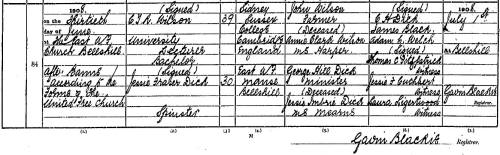 1908.
on the Thirtieth
day of
June
At East U.F.
Church Bellshill
After Banns
according to the
Forms of the
United Free Church
84
(Signed)
C. T. R. Wilson
University
Lecturer
Bachelor
(Signed)
Jessie Fraser Dick
Spinster
39
30
Sidney
Sussex
College
Cambridge
England
East U.F.
Manse
Bellshill
John Wilson
Farmer
(Deceased)
Annie Clark Wilson
M.S. Harper
George Hill Dick
Minister
(Deceased)
Jessie Imbrie Dick
M.S. Mearns
(Signed)
C. H. Dick
James Black
Adam C. Welch
(Signed)
Thomas C. Fitzpatrick
Witness
Jessie F. Cuthbert
Witness
Laura Sigertwood
Witness
1908.
July 1st
At Bellshill
Gavin Blackie
Registrar.
Gavin Blackie Registrar.